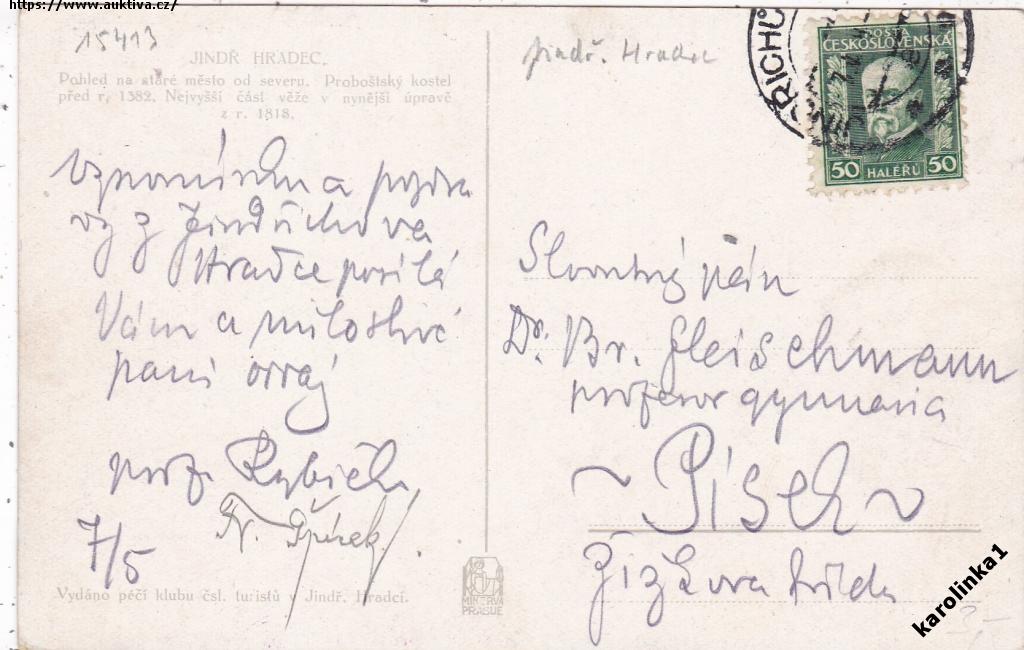 https://www.auktiva.cz/
15413
JINDŘ HRADEC.
Pohled na staré město od severu. Proboštský kostel
před r. 1382. Nejvyšší část věže v nynější úpravě
z r. 1818.
Jindř. Hradec
POSTA
ČESKOSLOVENSKÁ
50 HALÉŘŮ 50
Vzpomínku a pozdra
vy z Jindřichova
Hradce posílá
Vám a milostivé
paní
prof. Rybička
Fr.
7/5
Slovutný pán
Dr. Br. Fleischmann
profesor gymnasia
Písek
Žižkova třída
Vydáno péčí klubu čsl. turistů v Jindř. Hradci.
MINERVA
PRAGUE
karolinka1